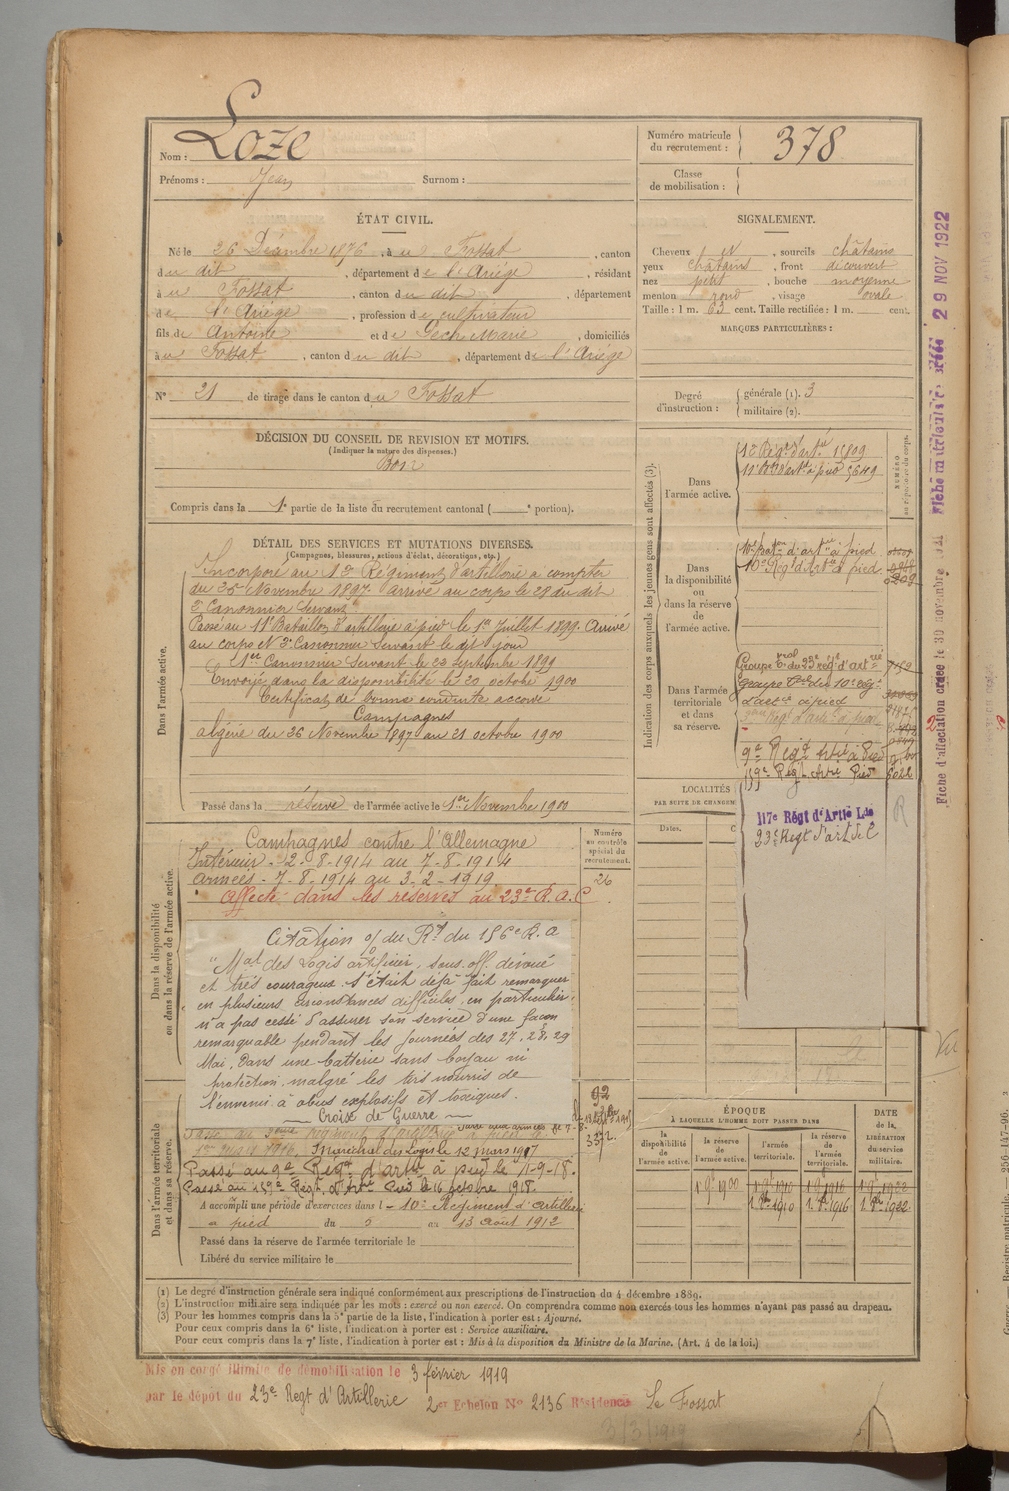 Nom : Loze
Prénoms : Jean Surnom :
Numéro matricule du recrutement : 378
Classe de mobilisation :
ÉTAT CIVIL.
Né le 26 Décembre 1876, à u Fossat, canton
du dit, département de l'Ariège, résidant
à u Fossat, canton du dit, département
de l'Ariège, profession de cultivateur
fils de Antoine et de Marie, domiciliés
à u Fossat, canton du dit, département de l'Ariège
N° 21 de tirage dans le canton du Fossat
SIGNALEMENT.
Cheveux et, sourcils châtains
yeux châtains, front découvert
nez petit, bouche moyenne
menton rond, visage ovale
Taille : 1 m. 63 cent. Taille rectifiée : 1 m. cent.
MARQUES PARTICULIÈRES :
Degré d'instruction :
générale (1). 3
militaire (2).
DÉCISION DU CONSEIL DE REVISION ET MOTIFS.
(Indiquer la nature des dispenses.)
Bon
Compris dans la 1e partie de la liste du recrutement cantonal ( e portion).
DÉTAIL DES SERVICES ET MUTATIONS DIVERSES.
(Campagnes, blessures, actions d'éclat, décorations, etc.)
Dans l'armée active.
Incorporé au 12e Régiment d'artillerie à compter
du 25 Novembre 1897. arrivé au corps le 28 du dit
2e Canonnier Servant.
Passé au 11e Bataillon d'artillerie à pied le 1er Juillet 1899. Arrivé
au corps 2e Canonnier Servant le dit jour
1er Canonnier Servant le 23 Septembre 1899
Envoyé dans la disponibilité le 20 octobre 1900
Certificat de bonne conduite accordé
Campagnes
algérie du 26 Novembre 1897 au 21 octobre 1900
Passé dans la réserve de l'armée active le 1er Novembre 1900
Dans la disponibilité ou dans la réserve de l'armée active.
Campagnes contre l'Allemagne
Intérieur - 2-8-1914 au 7-8-1914
armées - 7-8-1914 au 3-2-1919
Affecté dans les réserves au 23e R.A.C
Numéro au contrôle spécial du recrutement.
26
Citation o/ du Rt du 156e R.a
"Mal des Logis artificier, sous-off. dévoué
et très courageux. S'était déjà fait remarquer
en plusieurs circonstances difficiles, en particulier,
n'a pas cessé d'assurer son service d'une façon
remarquable pendant les journées des 27, 28, 29
Mai, dans une batterie sans boyau ni
protection, malgré les tirs nourris de
l'ennemi à obus explosifs et toxiques.
Croix de Guerre
Dans l'armée territoriale et dans sa réserve.
Passé au 3ème régiment d'artillerie à pied
Maréchal des Logis le 12 mars 1917
Passé au 9e Régt d'artie à pied le 1-9-18.
Passé au 159e Régt d'Artie Pied le 16 octobre 1918.
A accompli une période d'exercices dans l - 10e Régiment d'Artillerie
à pied du 5 au 13 août 1912
Passé dans la réserve de l'armée territoriale le
Libéré du service militaire le
Indication des corps auxquels les jeunes gens sont affectés (3).
NUMÉRO au répertoire du corps.
Dans l'armée active.
12e Régt d'artie 15809
11e Bon d'artie à pied 5649
Dans la disponibilité ou dans la réserve de l'armée active.
10e Régt d'Artie à pied
Dans l'armée territoriale et dans sa réserve.
Groupe du régt d'artie
Groupe du 10e Régt
d'artie à pied
3ème Régt d'artie à pied
9e Régt Artie à Pied
159e Régt Artie Pied
117e Régt d'Artie Lde
23e Régt d'art de C
R
LOCALITÉS
PAR SUITE DE CHANGEM
Dates.
ÉPOQUE
À LAQUELLE L'HOMME DOIT PASSER DANS
DATE de la LIBÉRATION du service militaire.
la disponibilité de l'armée active.
la réserve de l'armée active.
l'armée territoriale.
la réserve de l'armée territoriale.
(1) Le degré d'instruction générale sera indiqué conformément aux prescriptions de l'instruction du 4 décembre 1889.
(2) L'instruction militaire sera indiquée par les mots : exercé ou non exercé. On comprendra comme non exercés tous les hommes n'ayant pas passé au drapeau.
(3) Pour les hommes compris dans la 5e partie de la liste, l'indication à porter est : Ajourné.
Pour ceux compris dans la 6e liste, l'indication à porter est : Service auxiliaire.
Pour ceux compris dans la 7e liste, l'indication à porter est : Mis à la disposition du Ministre de la Marine. (Art. 4 de la loi.)
Mis en congé illimité de démobilisation le 3 février 1919
par le dépôt du 23e Régt d'Artillerie 2er Echelon N° 2136 Résidence Le Fossat
3/3/1919
Fiche d'affectation créée le 30 novembre
Fiche matricule créée 29 NOV 1922
Vu